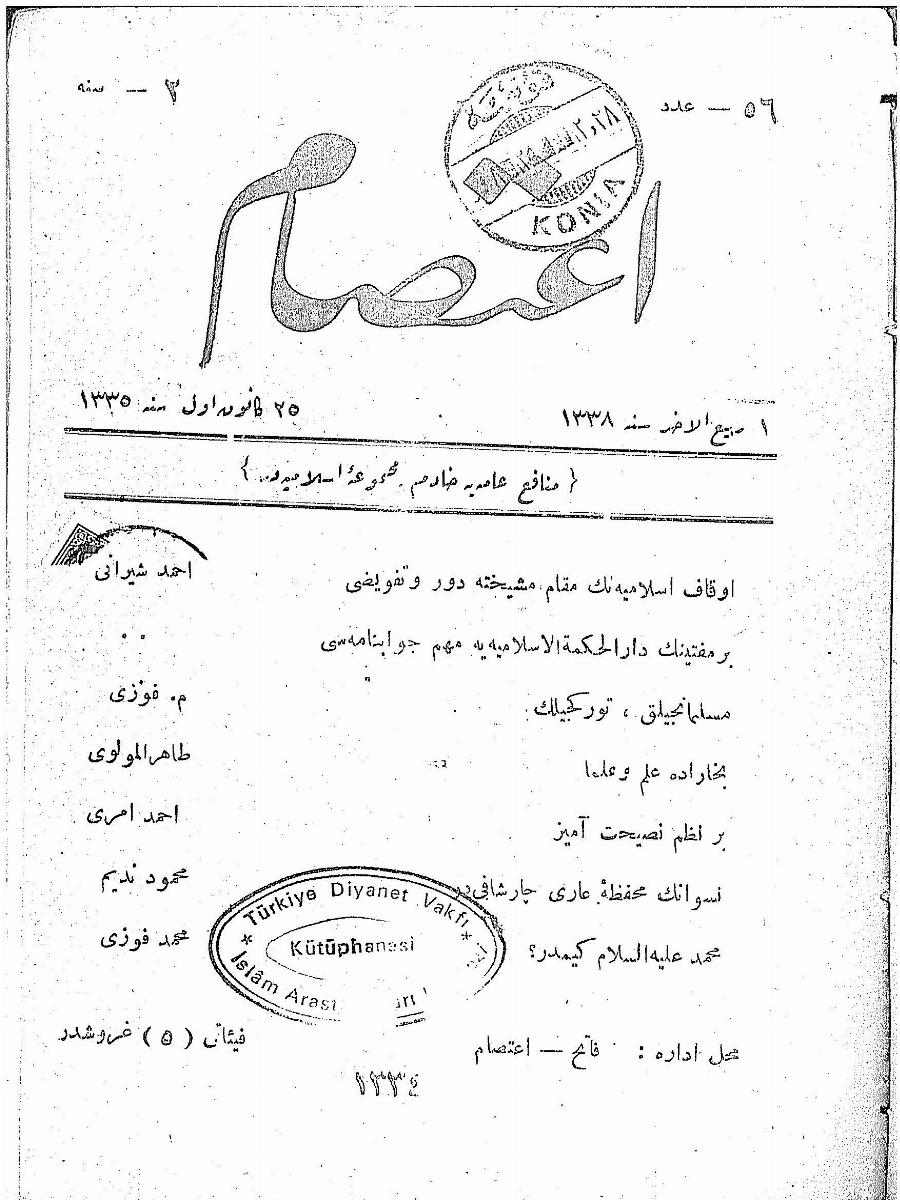 ٥٦ — عدد
٢ — سنه
قونیه
KONIA
اعتصام
١ ربیع الاخر سنه ١٣٣٨
٢٥ كانون اول سنه ١٣٣٥
{ منافع عامه‌یه خادم مجموعهٔ اسلامیه‌در }
اوقاف اسلامیه‌نك مقام مشیخته دور وتفویضی احمد شیرانی
بر مفتینك دارالحكمةالاسلامیه‌یه مهم جوابنامه‌سی » »
مسلمانجیلق ، توركجیلك م. فوزی
بخاراده علم وعلما طاهرالمولوی
بر نظم نصیحت آمیز احمد امری
نسوانك محفظهٔ عاری چارشافی‌در محمود ندیم
محمد علیه‌السلام كیمدر؟ محمد فوزی
* Türkiye Diyanet Vakfı *
İslâm Araşt
Kütüphanesi
محل اداره : فاتح — اعتصام
فیئاتی (٥) غروشدر
١٣٣٤